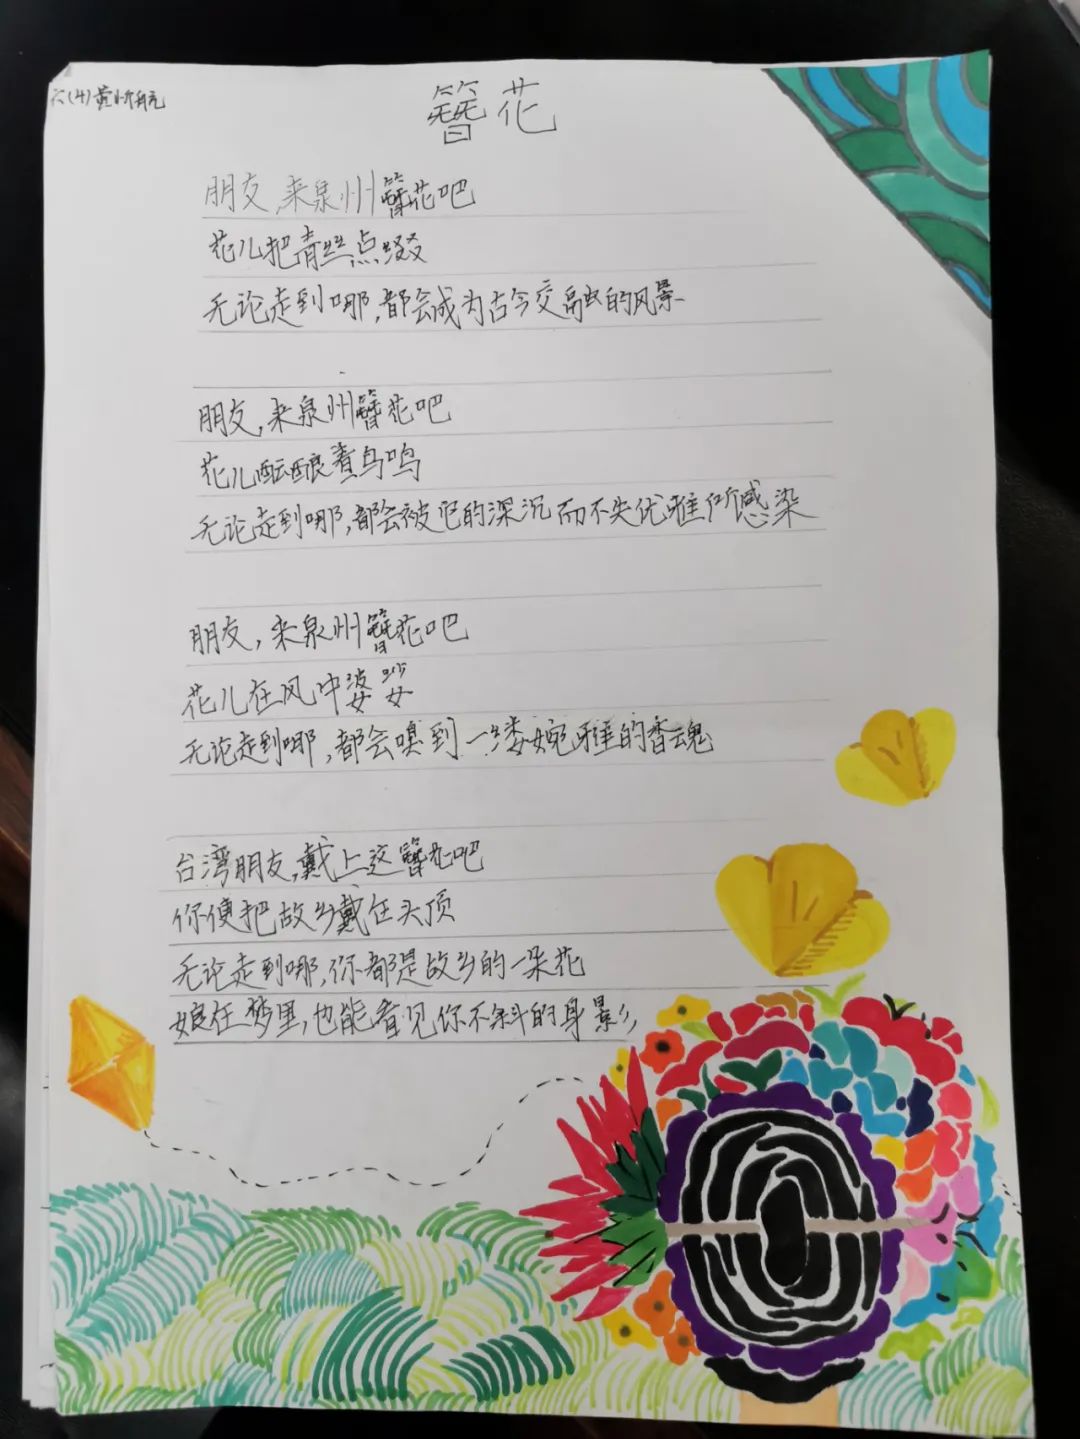 六(4)黄昕航
簪花
朋友,来泉州簪花吧
花儿把青丝点缀
无论走到哪,都会成为古今交融的风景
朋友,来泉州簪花吧
花儿酝酿着鸟鸣
无论走到哪,都会被它的深沉而不失优雅所感染
朋友,来泉州簪花吧
花儿在风中婆娑
无论走到哪,都会嗅到一缕婉雅的香魂
台湾朋友,戴上这簪花吧
你便把故乡戴在头顶
无论走到哪,你都是故乡的一朵花
娘在梦里,也能看见你不斜的身影